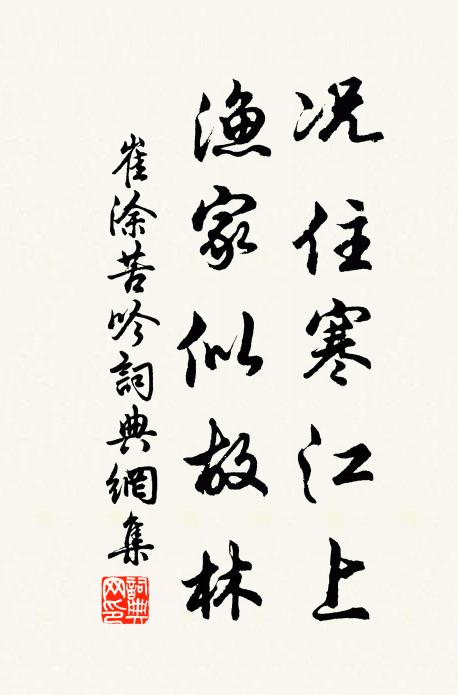 况住寒江上
渔家似故林
崔涂苦吟词典網集
詞典网印